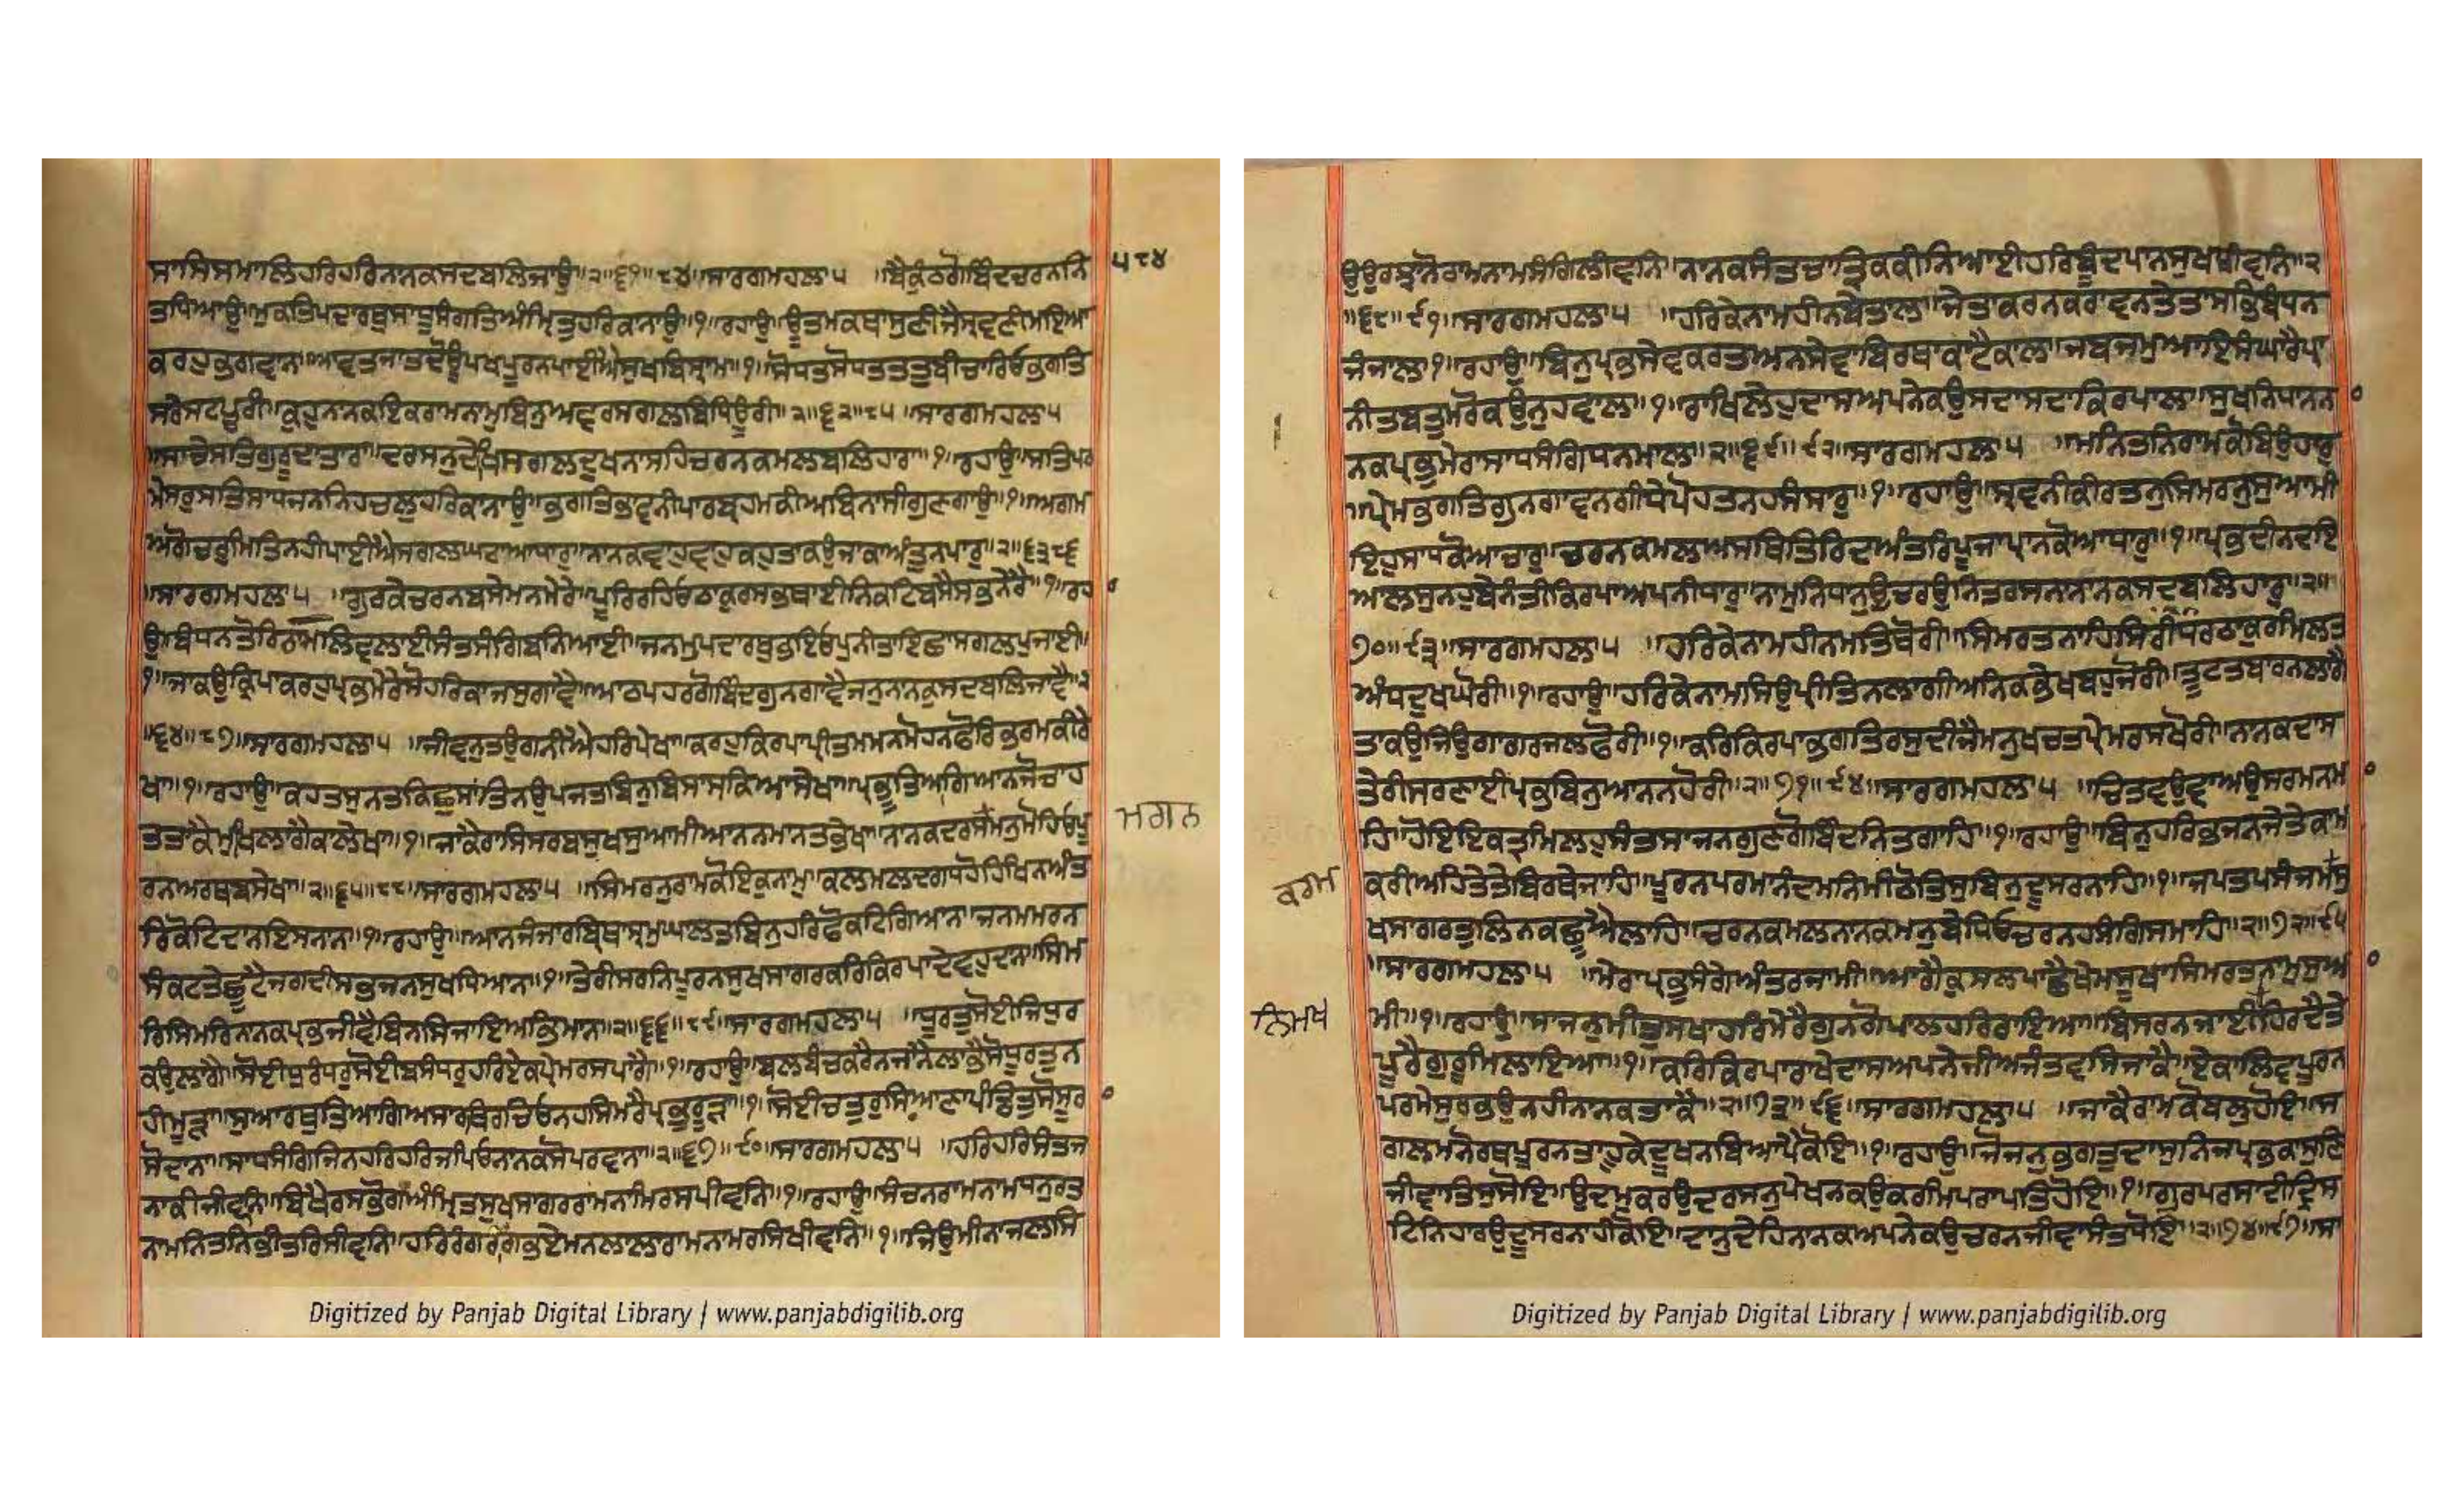 ਸਾਸਿਸਮਾਲਿਹਰਿਹਰਿਨਨਕਸਦਬਲਿਜਾਉ॥੨॥੬੧॥੮੪॥ਸਾਰਗਮਹਲਾ੫ ॥ਬੈਕੁੰਠਗੋਬਿੰਦਚਰਨਨਿ
੫੮੪
ਤਧਿਆਉ॥ਮੁਕਤਿਪਦਾਰਥੁਸਾਧੂਸੰਗਤਿਅੰਮ੍ਰਿਤੁਹਰਿਕਾਨਾਉ॥੧॥ਰਹਾਉ॥ਊਤਮਕਥਾਸੁਣੀਜੈਸ੍ਰਵਣੀਮਇਆ
ਕਰਹੁਭਗਵਾਨ॥ਆਵਤਜਾਤਦੋਊਪਖਪੂਰਨਪਾਈਐਸੁਖਬਿਸ੍ਰਾਮ॥੧॥ਸੋਧਤਸੋਧਤਤਤੁਬੀਚਾਰਿਓਭਗਤਿ
ਸਰੇਸਟਪੂਰੀ॥ਕਹੁਨਨਕਇਕਰਾਮਨਾਮੁਬਿਨੁਅਵਰਸਗਲਬਿਧਿਊਰੀ॥੨॥੬੨॥੮੫॥ਸਾਰਗਮਹਲਾ੫
॥ਸਾਚੇਸਤਿਗੁਰੂਦਾਤਾਰਾ॥ਦਰਸਨੁਦੇਖਿਸਗਲਦੁਖਨਾਸਹਿਚਰਨਕਮਲਬਲਿਹਾਰਾ॥੧॥ਰਹਾਉ॥ਸਤਿਪਰ
ਮੇਸਰੁਸਤਿਸਾਧਜਨਨਿਹਚਲੁਹਰਿਕਾਨਾਉ॥ਭਗਤਿਭਾਵਨੀਪਾਰਬ੍ਰਹਮਕੀਅਬਿਨਾਸੀਗੁਣਗਾਉ॥੧॥ਅਗਮ
ਅਗੋਚਰੁਮਿਤਿਨਹੀਪਾਈਐਸਗਲਘਟਾਆਧਾਰੁ॥ਨਾਨਕਵਾਹੁਵਾਹੁਕਹੁਤਾਕਉਜਾਕਾਅੰਤੁਨਪਾਰੁ॥੨॥੬੩॥੮੬
॥ਸਾਰਗਮਹਲਾ੫ ॥ਗੁਰਕੇਚਰਨਬਸੇਮਨਮੇਰੇ॥ਪੂਰਿਰਹਿਓਠਾਕੁਰਸਭਥਾਈਨਿਕਟਿਬਸੈਸਭਨੇਰੈ॥੧॥ਰਹਾ
ਉ॥ਬੰਧਨਤੋਰਿਰਾਮਲਿਵਲਾਈਸੰਤਸੰਗਿਬਨਿਆਈ॥ਜਨਮੁਪਦਾਰਥੁਭਇਓਪੁਨੀਤਾਇਛਾਸਗਲਪੁਜਾਈ॥
੧॥ਜਾਕਉਕ੍ਰਿਪਾਕਰਹੁਪ੍ਰਭਮੇਰੇਸੋਹਰਿਕਾਜਸੁਗਾਵੈ॥ਆਠਪਹਰਗੋਬਿੰਦਗੁਨਗਾਵੈਜਨੁਨਨਕੁਸਦਬਲਿਜਾਵੈ॥੨
॥੬੪॥੮੭॥ਸਾਰਗਮਹਲਾ੫ ॥ਜੀਵਨੁਤਉਗਨੀਐਹਰਿਪੇਖਾ॥ਕਰਹੁਕਿਰਪਾਪ੍ਰੀਤਮਮਨਮੋਹਨਫੋਰਿਭਰਮਕੀਰੇ
ਖਾ॥੧॥ਰਹਾਉ॥ਕਹਤਸੁਨਤਕਿਛੁਸਾਂਤਿਨਉਪਜਤਬਿਨੁਬਿਸਾਸਕਿਆਸੇਖਾ॥ਪ੍ਰਭੂਤਿਆਗਿਆਨਜੋਚਾਹ
ਤਤਾਕੈਮੁਖਿਲਾਗੈਕਾਲੇਖਾ॥੧॥ਜਾਕੈਰਾਸਿਸਰਬਸੁਖਸੁਆਮੀਆਨਨਮਾਨਤਭੇਖਾ॥ਨਾਨਕਦਰਸਮਨੁਮੋਹਿਓਪੂ
ਮਗਨ
ਰਨਅਰਥਬਸੇਖਾ॥੨॥੬੫॥੮੮॥ਸਾਰਗਮਹਲਾ੫ ॥ਸਿਮਰਨੁਰਾਮਕੋਇਕੁਨਾਮੁ॥ਕਲਮਲਦਗਧਹੋਹਿਖਿਨਅੰਤ
ਰਿਕੋਟਿਦਾਨਇਸਨਾਨ॥੧॥ਰਹਾਉ॥ਆਨਜੰਜਾਰਬ੍ਰਿਥਾਸ੍ਰਮੁਘਾਲਤਬਿਨੁਹਰਿਫੋਕਟਿਗਿਆਨ॥ਜਨਮਮਰਨ
ਸੰਕਟਤੇਛੂਟੈਜਗਦੀਸਭਜਨਸੁਖਧਿਆਨ॥੧॥ਤੇਰੀਸਰਨਿਪੂਰਨਸੁਖਸਾਗਰਕਰਿਕਿਰਪਾਦੇਵਹੁਦਾਨ॥ਸਿਮ
ਰਿਸਿਮਰਿਨਾਨਕਪ੍ਰਭਜੀਵੈਬਿਨਸਿਜਾਇਅਭਿਮਾਨ॥੨॥੬੬॥੮੯॥ਸਾਰਗਮਹਲਾ੫ ॥ਧੂਰਤੁਸੋਈਜਿਧੁਰ
ਕਉਲਾਗੈ॥ਸੋਈਧੁਰੰਧਰੁਸੋਈਬਸੁੰਧਰੁਹਰਿਏਕਪ੍ਰੇਮਰਸਪਾਗੈ॥੧॥ਰਹਾਉ॥ਬਲਬੰਚਕਰੈਨਜਾਨੈਲਾਭੈਸੋਧੂਰਤੁਨ
ਹੀਮੂੜ੍ਹਾ॥ਸੁਆਰਥੁਤਿਆਗਿਅਸਾਰਥਿਰਚਿਓਨਹਸਿਮਰੈਪ੍ਰਭੁਰੂੜਾ॥੧॥ਸੋਈਚਤੁਰੁਸਿਆਣਾਪੰਡਿਤੁਸੋਸੂਰਾ
ਸੋਦਾਨਾ॥ਸਾਧਸੰਗਿਜਿਨਹਰਿਹਰਿਜਪਿਓਨਾਨਕਸੋਪਰਵਾਨਾ॥੨॥੬੭॥੯੦॥ਸਾਰਗਮਹਲਾ੫ ॥ਹਰਿਹਰਿਸੰਤਜ
ਨਾਕੀਜੀਵਨਿ॥ਬਿਖੈਰਸਭੋਗਅੰਮ੍ਰਿਤਸੁਖਸਾਗਰਰਾਮਨਾਮਰਸਪੀਵਨਿ॥੧॥ਰਹਾਉ॥ਸੰਚਨਰਾਮਨਾਮਧਨੁਰਤ
ਨਾਮਨਿਤਨਿਭੀਤਰਿਸੀਵਨਿ॥ਹਰਿਰੰਗਰਾਂਗਭਏਮਨਲਾਲਾਰਾਮਨਾਮਰਸਿਖੀਵਨਿ॥੧॥ਜਿਉਮੀਨਾਜਲਸਿ
ਉਉਰਝਾਨੋਰਾਮਨਾਮਸੰਗਿਲੀਵਨਿ॥ਨਾਨਕਸੰਤਚਾਤ੍ਰਿਕਕੀਨਿਆਈਹਰਿਬੂੰਦਪਾਨਸੁਖਥੀਵਨਿ॥੨
॥੬੮॥੯੧॥ਸਾਰਗਮਹਲਾ੫ ॥ਹਰਿਕੇਨਾਮਹੀਨਬੇਤਾਲ॥ਜੇਤਾਕਰਨਕਰਾਵਨਤੇਤਾਸਭਿਬੰਧਨ
ਜੰਜਾਲ॥੧॥ਰਹਾਉ॥ਬਿਨੁਪ੍ਰਭਸੇਵਕਰਤਅਨਸੇਵਾਬਿਰਥਾਕਾਟੈਕਾਲ॥ਜਬਜਮੁਆਇਸੰਘਾਰੈਪ੍ਰਾ
ਨੀਤਬਤੁਮਰੋਕਉਨੁਹਵਾਲ॥੧॥ਰਾਖਿਲੇਹੁਦਾਸਅਪਨੇਕਉਸਦਾਸਦਾਕਿਰਪਾਲ॥ਸੁਖਨਿਧਾਨਨਾ
ਨਕਪ੍ਰਭੁਮੇਰਾਸਾਧਸੰਗਿਧਨਮਾਲ॥੨॥੬੯॥੯੨॥ਸਾਰਗਮਹਲਾ੫ ॥ਮਨਿਤਨਿਰਾਮਕੋਬਿਉਹਾਰੁ
॥ਪ੍ਰੇਮਭਗਤਿਗੁਨਗਾਵਨਗੀਧੇਪੋਹਤਨਹਸੰਸਾਰੁ॥੧॥ਰਹਾਉ॥ਸ੍ਰਵਨੀਕੀਰਤਨੁਸਿਮਰਨੁਸੁਆਮੀ
ਇਹੁਸਾਧਕੋਆਚਾਰੁ॥ਚਰਨਕਮਲਅਸਥਿਤਿਰਿਦਅੰਤਰਿਪੂਜਾਪ੍ਰਾਨਕੋਆਧਾਰੁ॥੧॥ਪ੍ਰਭਦੀਨਦਇ
ਆਲਸੁਨਹੁਬੇਨੰਤੀਕਿਰਪਾਅਪਨੀਧਾਰੁ॥ਨਾਮੁਨਿਧਾਨੁਉਚਰਉਨਿਤਰਸਨਨਾਨਕਸਦਬਲਿਹਾਰੁ॥੨॥
੭੦॥੯੩॥ਸਾਰਗਮਹਲਾ੫ ॥ਹਰਿਕੇਨਾਮਹੀਨਮਤਿਥੋਰੀ॥ਸਿਮਰਤਨਾਹਿਸਿਰੀਧਰਠਾਕੁਰਮਿਲਤ
ਅੰਧਦੁਖਘੋਰੀ॥੧॥ਰਹਾਉ॥ਹਰਿਕੇਨਾਮਸਿਉਪ੍ਰੀਤਿਨਲਾਗੀਅਨਿਕਭੇਖਬਹੁਜੋਰੀ॥ਤੂਟਤਬਾਰਨਲਾਗੈ
ਤਾਕਉਜਿਉਗਾਗਰਜਲਫੋਰੀ॥੧॥ਕਰਿਕਿਰਪਾਭਗਤਿਰਸੁਦੀਜੈਮਨੁਖਚਤਪ੍ਰੇਮਰਸਖੋਰੀ॥ਨਾਨਕਦਾਸ
ਤੇਰੀਸਰਣਾਈਪ੍ਰਭਬਿਨੁਆਨਨਹੋਰੀ॥੨॥੭੧॥੯੪॥ਸਾਰਗਮਹਲਾ੫ ॥ਚਿਤਵਉਵਾਅਉਸਰਮਨਮਾ
ਹਿ॥ਹੋਇਇਕਤ੍ਰਮਿਲਹੁਸੰਤਸਾਜਨਗੁਣਗੋਬਿੰਦਨਿਤਗਾਹਿ॥੧॥ਰਹਾਉ॥ਬਿਨੁਹਰਿਭਜਨਜੇਤੇਕਾਮ
ਕਰਮ
ਕਰੀਅਹਿਤੇਤੇਬਿਰਥੇਜਾਹਿ॥ਪੂਰਨਪਰਮਾਨੰਦਮਨਿਮੀਠੋਤਿਸੁਬਿਨੁਦੂਸਰਨਾਹਿ॥੧॥ਜਪਤਪਸੰਜਮਸੁ
ਖਸਾਗਰਤੁਲਿਨਕਛੂਐਲਾਹਿ॥ਚਰਨਕਮਲਨਾਨਕਮਨੁਬੇਧਿਓਚਰਨਹਸੰਗਿਸਮਾਹਿ॥੨॥੭੨॥੯੫
॥ਸਾਰਗਮਹਲਾ੫ ॥ਮੇਰਾਪ੍ਰਭੁਸੰਗੇਅੰਤਰਜਾਮੀ॥ਆਗੈਕੁਸਲਪਾਛੈਖੇਮਸੂਖਾਸਿਮਰਤਨਾਮੁਸੁਆ
ਨਿਮਖ
ਮੀ॥੧॥ਰਹਾਉ॥ਸਾਜਨੁਮੀਤੁਸਖਾਹਰਿਮੇਰੈਗੁਨਗੋਪਾਲਹਰਿਰਾਇਆ॥ਬਿਸਰਨਜਾਈਹਿਰਦੈਤੇ
ਪੂਰੈਗੁਰੂਮਿਲਾਇਆ॥੧॥ਕਰਿਕਿਰਪਾਰਾਖੇਦਾਸਅਪਨੇਜੀਅਜੰਤਵਸਿਜਾਕੈ॥ਏਕਾਲਿਵਪੂਰਨ
ਪਰਮੇਸੁਰਭਉਨਹੀਨਾਨਕਤਾਕੈ॥੨॥੭੩॥੯੬॥ਸਾਰਗਮਹਲਾ੫ ॥ਜਾਕੈਰਾਮਕੋਬਲੁਹੋਇ॥ਸ
ਗਲਮਨੋਰਥਪੂਰਨਤਾਹੂਕੇਦੂਖਨਬਿਆਪੈਕੋਇ॥੧॥ਰਹਾਉ॥ਜੋਜਨੁਭਗਤੁਦਾਸੁਨਿਜਪ੍ਰਭਕਾਸੁਣਿ
ਜੀਵਾਤਿਸੁਸੋਇ॥ਉਦਮੁਕਰਉਦਰਸਨੁਪੇਖਨਕਉਕਰਮਿਪਰਾਪਤਿਹੋਇ॥੧॥ਗੁਰਪਰਸਾਦੀਦ੍ਰਿਸ
ਟਿਨਿਹਾਰਉਦੂਸਰਨਾਹੀਕੋਇ॥ਦਾਨੁਦੇਹਿਨਾਨਕਅਪਨੇਕਉਚਰਨਜੀਵਾਸੰਤਧੋਇ॥੨॥੭੪॥੯੭॥ਸਾ
Digitized by Panjab Digital Library | www.panjabdigilib.org
Digitized by Panjab Digital Library | www.panjabdigilib.org